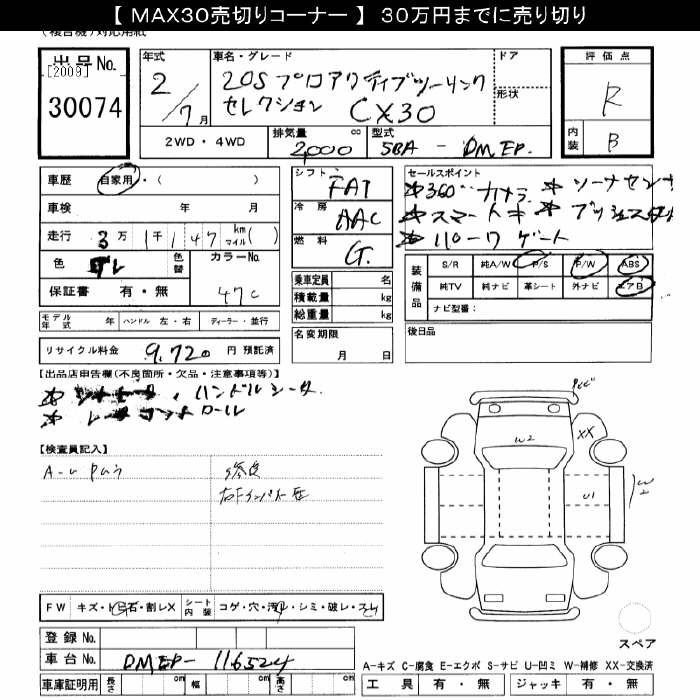 【 MAX30売切りコーナー 】 30万円までに売り切り
出品No.
[2009]
30074
年式
2/7月
車名・グレード
20S プロアクティブツーリング
セレクション CX30
ドア
形状
評価点
R
内装
B
2WD・4WD
排気量
2,000 cc
型式
5BA - DMEP.
車歴 自家用・( )
車検 年 月
走行 3万 1千 147 km マイル( )
色 グレ 色替 カラーNo. 47C
保証書 有・無
シフト FAT
冷房 AAC
燃料 G.
乗車定員 名
積載量 kg
総重量 kg
セールスポイント
＊360°カメラ ＊ソーナセンサ
＊スマートキ ＊プッシュスタート
＊パワーゲート
装備品
S/R 純A/W P/S P/W ABS
純TV 純ナビ 革シート 外ナビ エアB
ナビ型番：
モデル年式 年 ハンドル 左・右 ディーラー・並行
名変期限
月 日
後日品
リサイクル料金 9,720 円 預託済
【出品店申告欄(不良箇所・欠品・注意事項等)】
＊シートヒーター、ハンドルヒータ
＊レーダーコントロール
【検査員記入】
A-U
修復
右Fインパネ歪
W2
XX
U1
W2
FW キズ・トビ石・割レX シート内装 コゲ・穴・汚レ・シミ・破レ・スレ
スペア
登録 No.
車台 No. DMEP- 116524
A-キズ C-腐食 E-エクボ S-サビ U-凹ミ W-補修 XX-交換済
車庫証明用 長さ cm 幅 cm 高さ cm
工具 有・無 ジャッキ 有・無